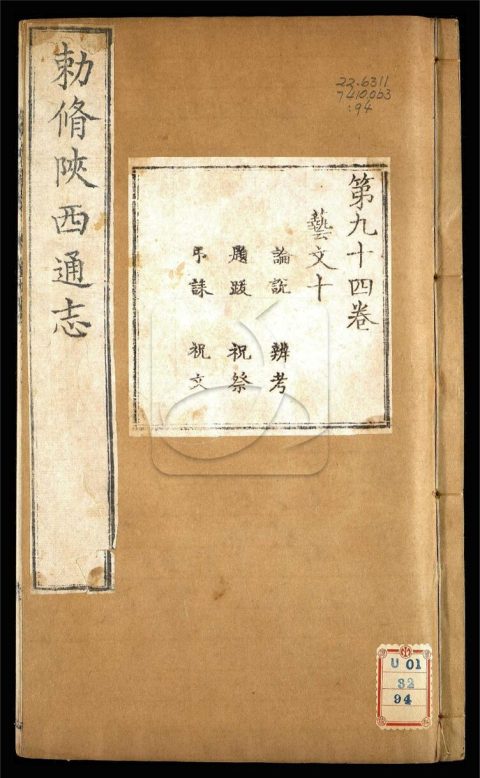 勅脩陝西通志
第九十四卷
藝文十
論説 辨考
題跋 祝祭
弔誄 祝文
22.6311
7410.0b3
:94
U 01
32
94